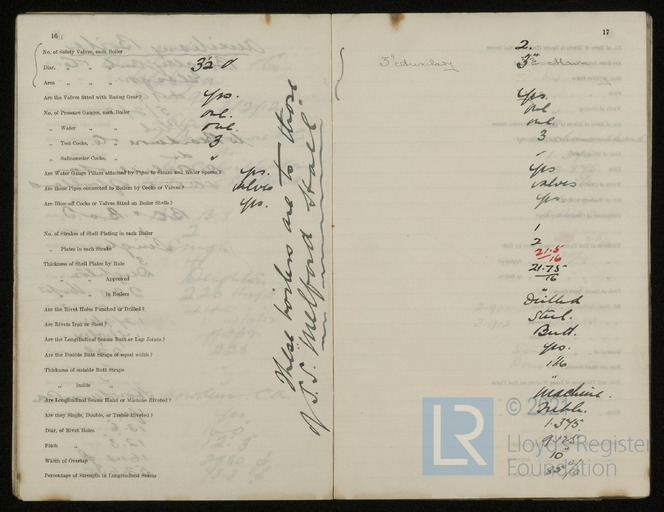 16
No. of Safety Valves, each Boiler
Diar. „ „ „
Area „ „ „
Are the Valves fitted with Easing Gear? yes.
No. of Pressure Gauges, each Boiler one.
„ Water „ „ one.
„ Test Cocks, „ 3
„ Salinometer Cocks, „ „
Are Water Gauge Pillars attached by Pipes to Steam and Water Spaces? yes.
Are these Pipes connected to Boilers by Cocks or Valves? valves
Are Blow-off Cocks or Valves fitted on Boiler Shells? yes.
No. of Strakes of Shell Plating in each Boiler
Plates in each Strake
Thickness of Shell Plates by Rule
„ „ Approved
„ „ in Boilers
Are the Rivet Holes Punched or Drilled?
Are Rivets Iron or Steel?
Are the Longitudinal Seams Butt or Lap Joints?
Are the Double Butt Straps of equal width?
Thickness of outside Butt Straps
„ inside „
Are Longitudinal Seams Hand or Machine Riveted?
Are they Single, Double, or Treble Riveted?
Diar. of Rivet Holes
Pitch „
Width of Overlap
Percentage of Strength in Longitudinal Seams
These boilers are to those
of S.S. Melford Hall.
17
2.
3" Auxiliary
yes.
one
one
3
„
yes
valves
yes
1
2
21.5
16
21.75
16
„
Drilled
Steel.
Butt.
yes.
„
Machine.
Treble.
1.375
9.125
10"
85%
LR
© 202
Lloyd's Register
Foundation